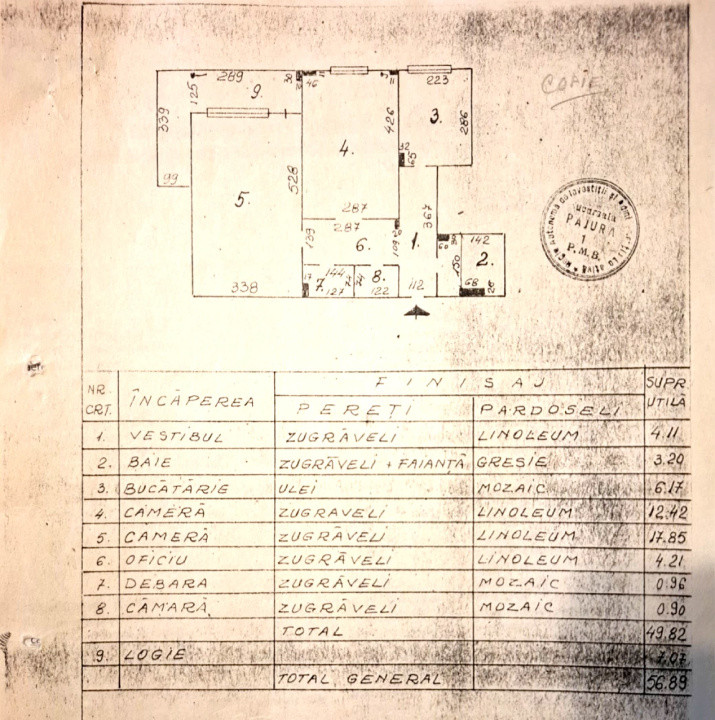 COPIE
289
9.
30
125
46
11
11
223
339
426
3.
286
4.
32
65
99
528
5.
287
367
287
139
6.
109
1.
142
2.
150
17
144
7.
127
8.
122
338
112
68
PAJURA
1
P.M.B.
NR. CRT.
ÎNCĂPEREA
FINISAJ
SUPR. UTILĂ
PEREȚI
PARDOSELI
1. VESTIBUL ZUGRĂVELI LINOLEUM 4.11
2. BAIE ZUGRĂVELI + FAIANȚĂ GRESIE 3.20
3. BUCĂTĂRIE ULEI MOZAIC 6.17
4. CAMERĂ ZUGRAVELI LINOLEUM 12.42
5. CAMERĂ ZUGRĂVELI LINOLEUM 17.85
6. OFICIU ZUGRĂVELI LINOLEUM 4.21
7. DEBARA ZUGRĂVELI MOZAIC 0.96
8. CĂMARĂ ZUGRĂVELI MOZAIC 0.90
TOTAL 49.82
9. LOGIE 7.07
TOTAL GENERAL 56.89